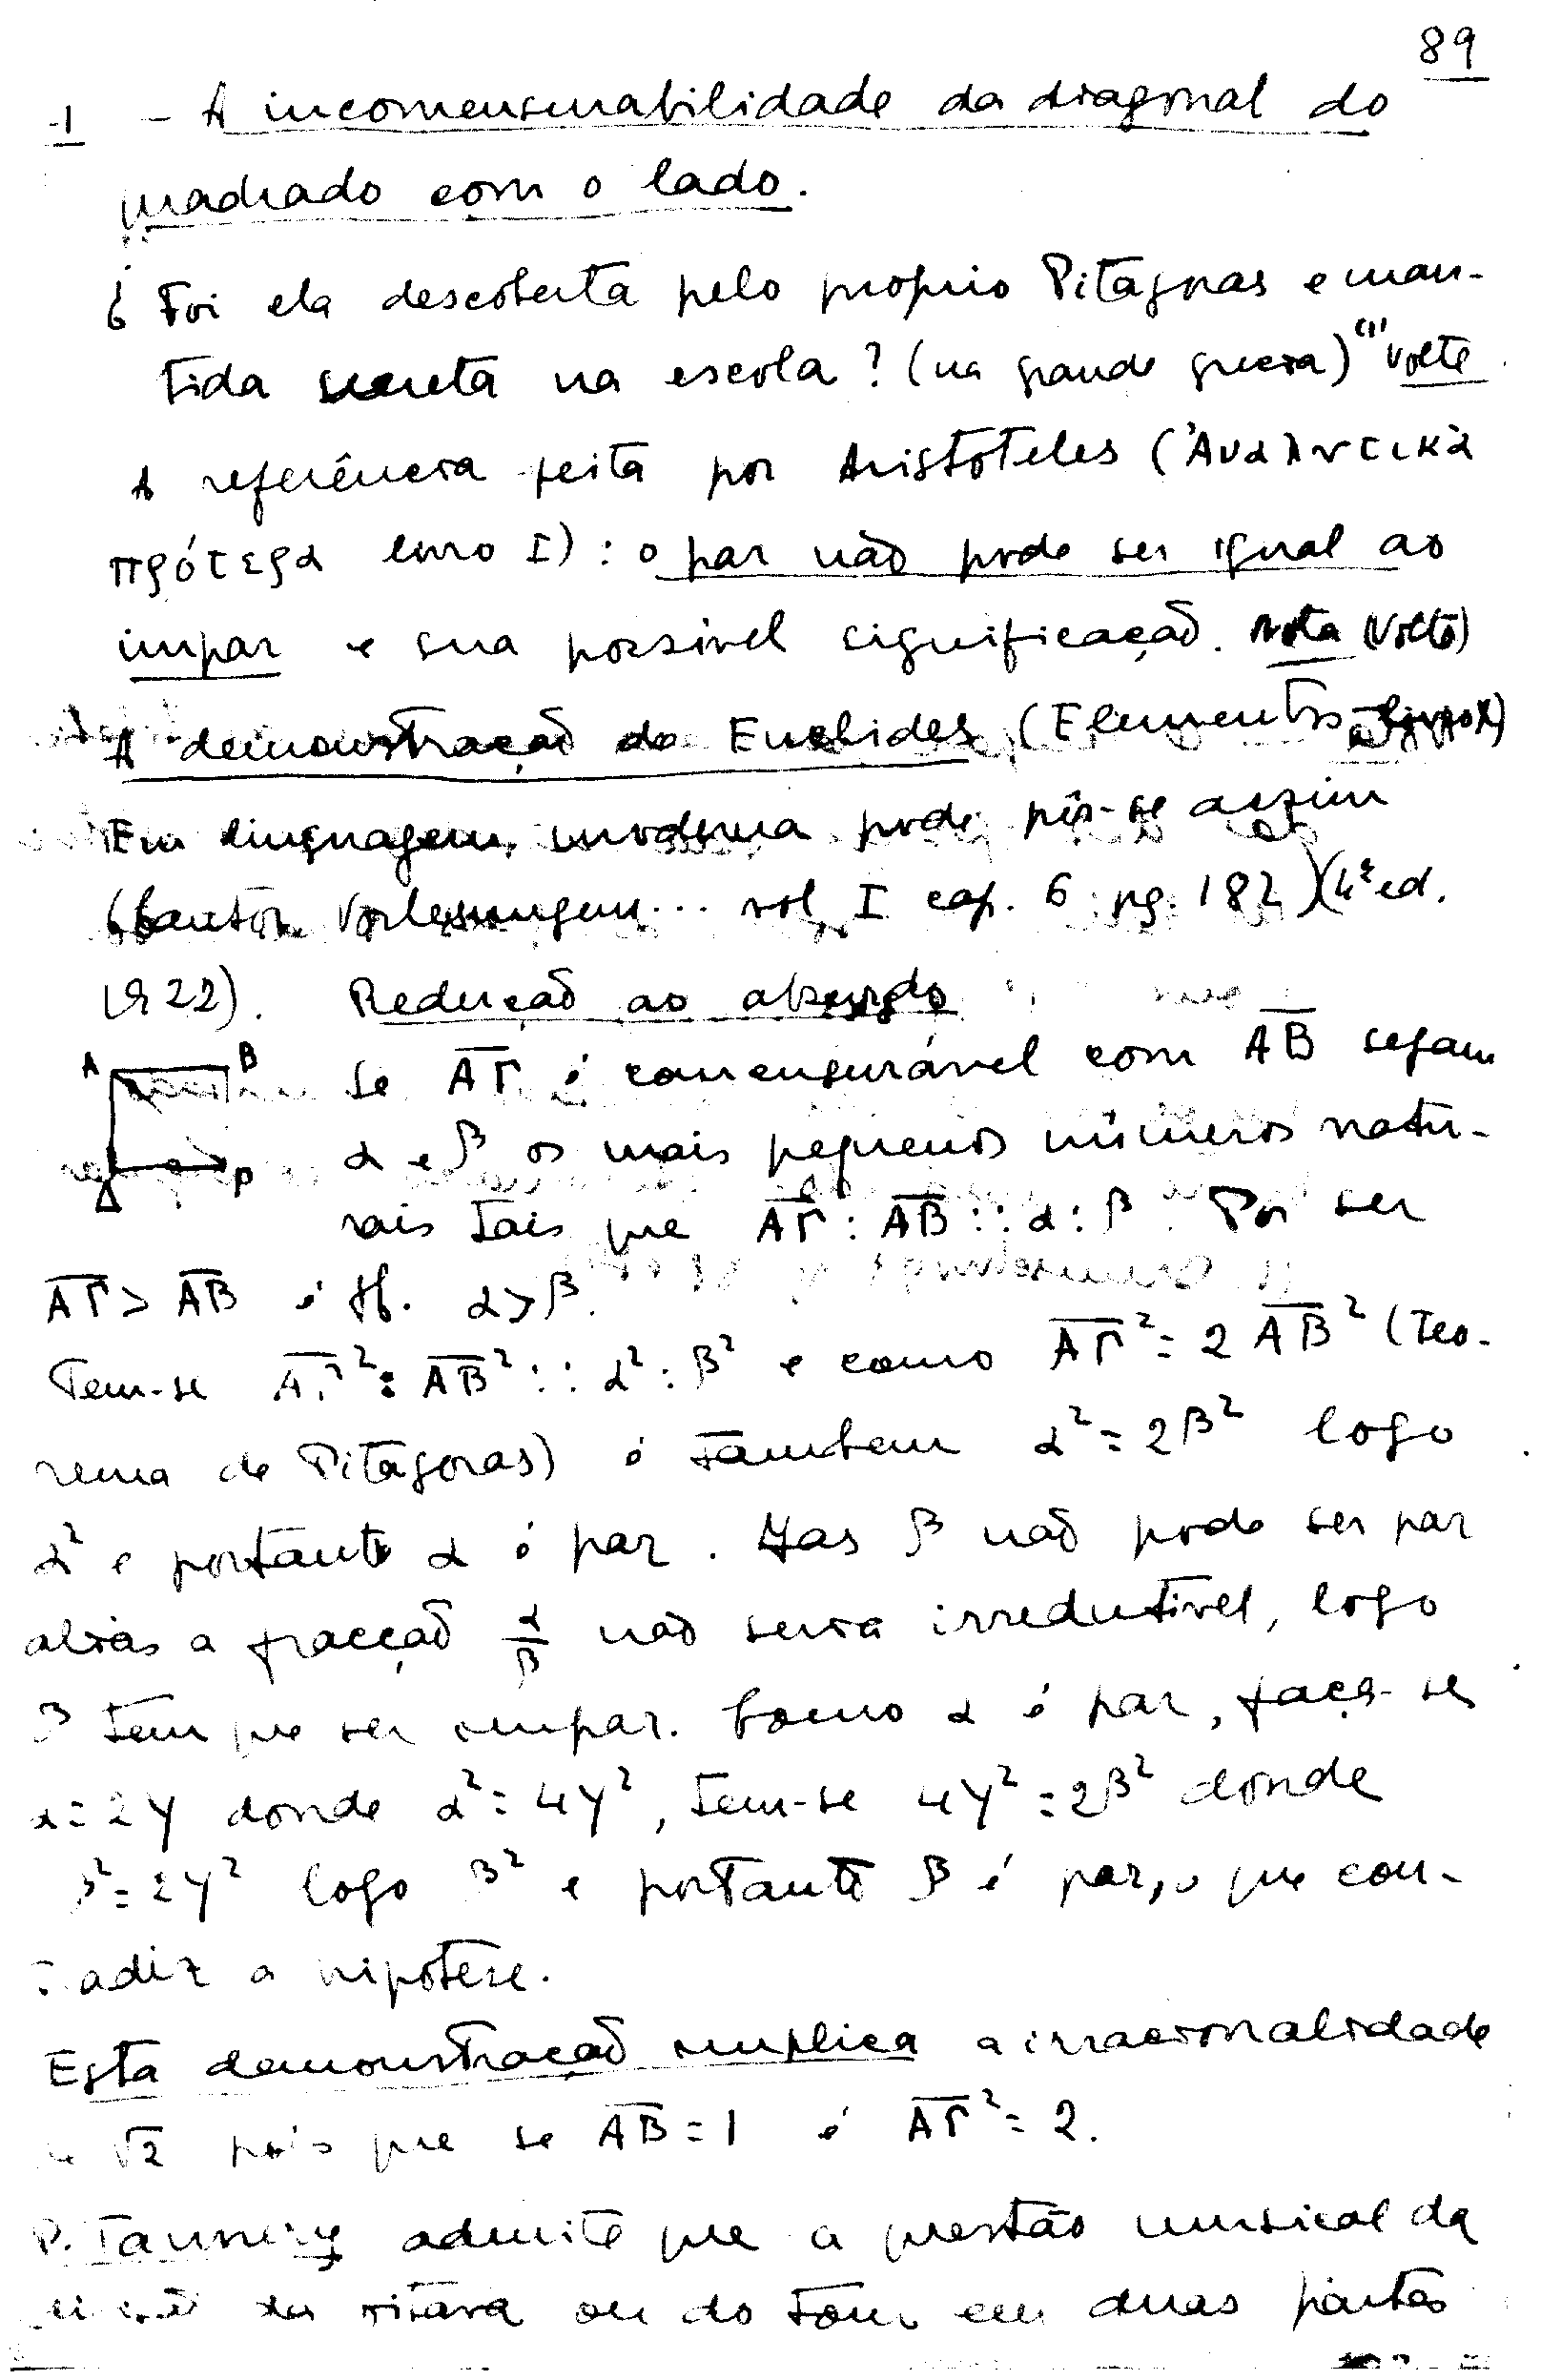 89
-1 - A incomensurabilidade da diagonal do
quadrado com o lado.
¿ Foi ela descoberta pelo proprio Pitagoras e man-
tida secreta na escola? (na grande grecia) (1) volte
A referência feita por Aristoteles (Ἀναλντικὰ
πρότερα livro I): o par não pode ser igual ao
impar e sua possivel significação. Nota (volte)
A demonstração de Euclides (Elementos livro X)
Em linguagem moderna pode pôr-se assim
(Cantor Vorlesungen... vol I cap. 6 pg. 182) (4ª ed.
1922). Redução ao absurdo
A B
se AΓ é comensurável com AB sejam
α e β os mais pequenos números natu-
Δ Γ
rais tais que AΓ : AB :: α : β. Por ser
AΓ > AB é α > β.
Tem-se AΓ² : AB² :: α² : β² e como AΓ² = 2 AB² (teo-
rema de Pitágoras) é tambem α² = 2β² logo
α² e portanto α é par. Mas β não pode ser par
aliás a fracção α/β não seria irredutível, logo
β tem que ser impar. Como α é par, faça-se
α = 2γ donde α² = 4γ², tem-se 4γ² = 2β² donde
β² = 2γ² logo β² e portanto β é par, o que con-
tradiz a hipotese.
Esta demonstração implica a irracionalidade
de √2 pois que se AB = 1 é AΓ² = 2.
P. Tannery admite que a questão musical da
da oitava ou do tom em duas partes